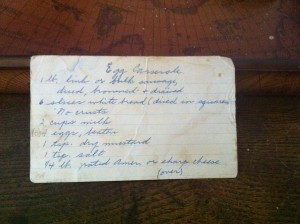 Egg Casserole
1 lb. link or bulk sausage,
diced, browned + drained
6 slices white bread (diced in squares
No crusts
2 cups milk
4 eggs, beaten
1 tsp. dry mustard
1 tsp salt
1/4 lb. grated Amer. or sharp cheese
(over)